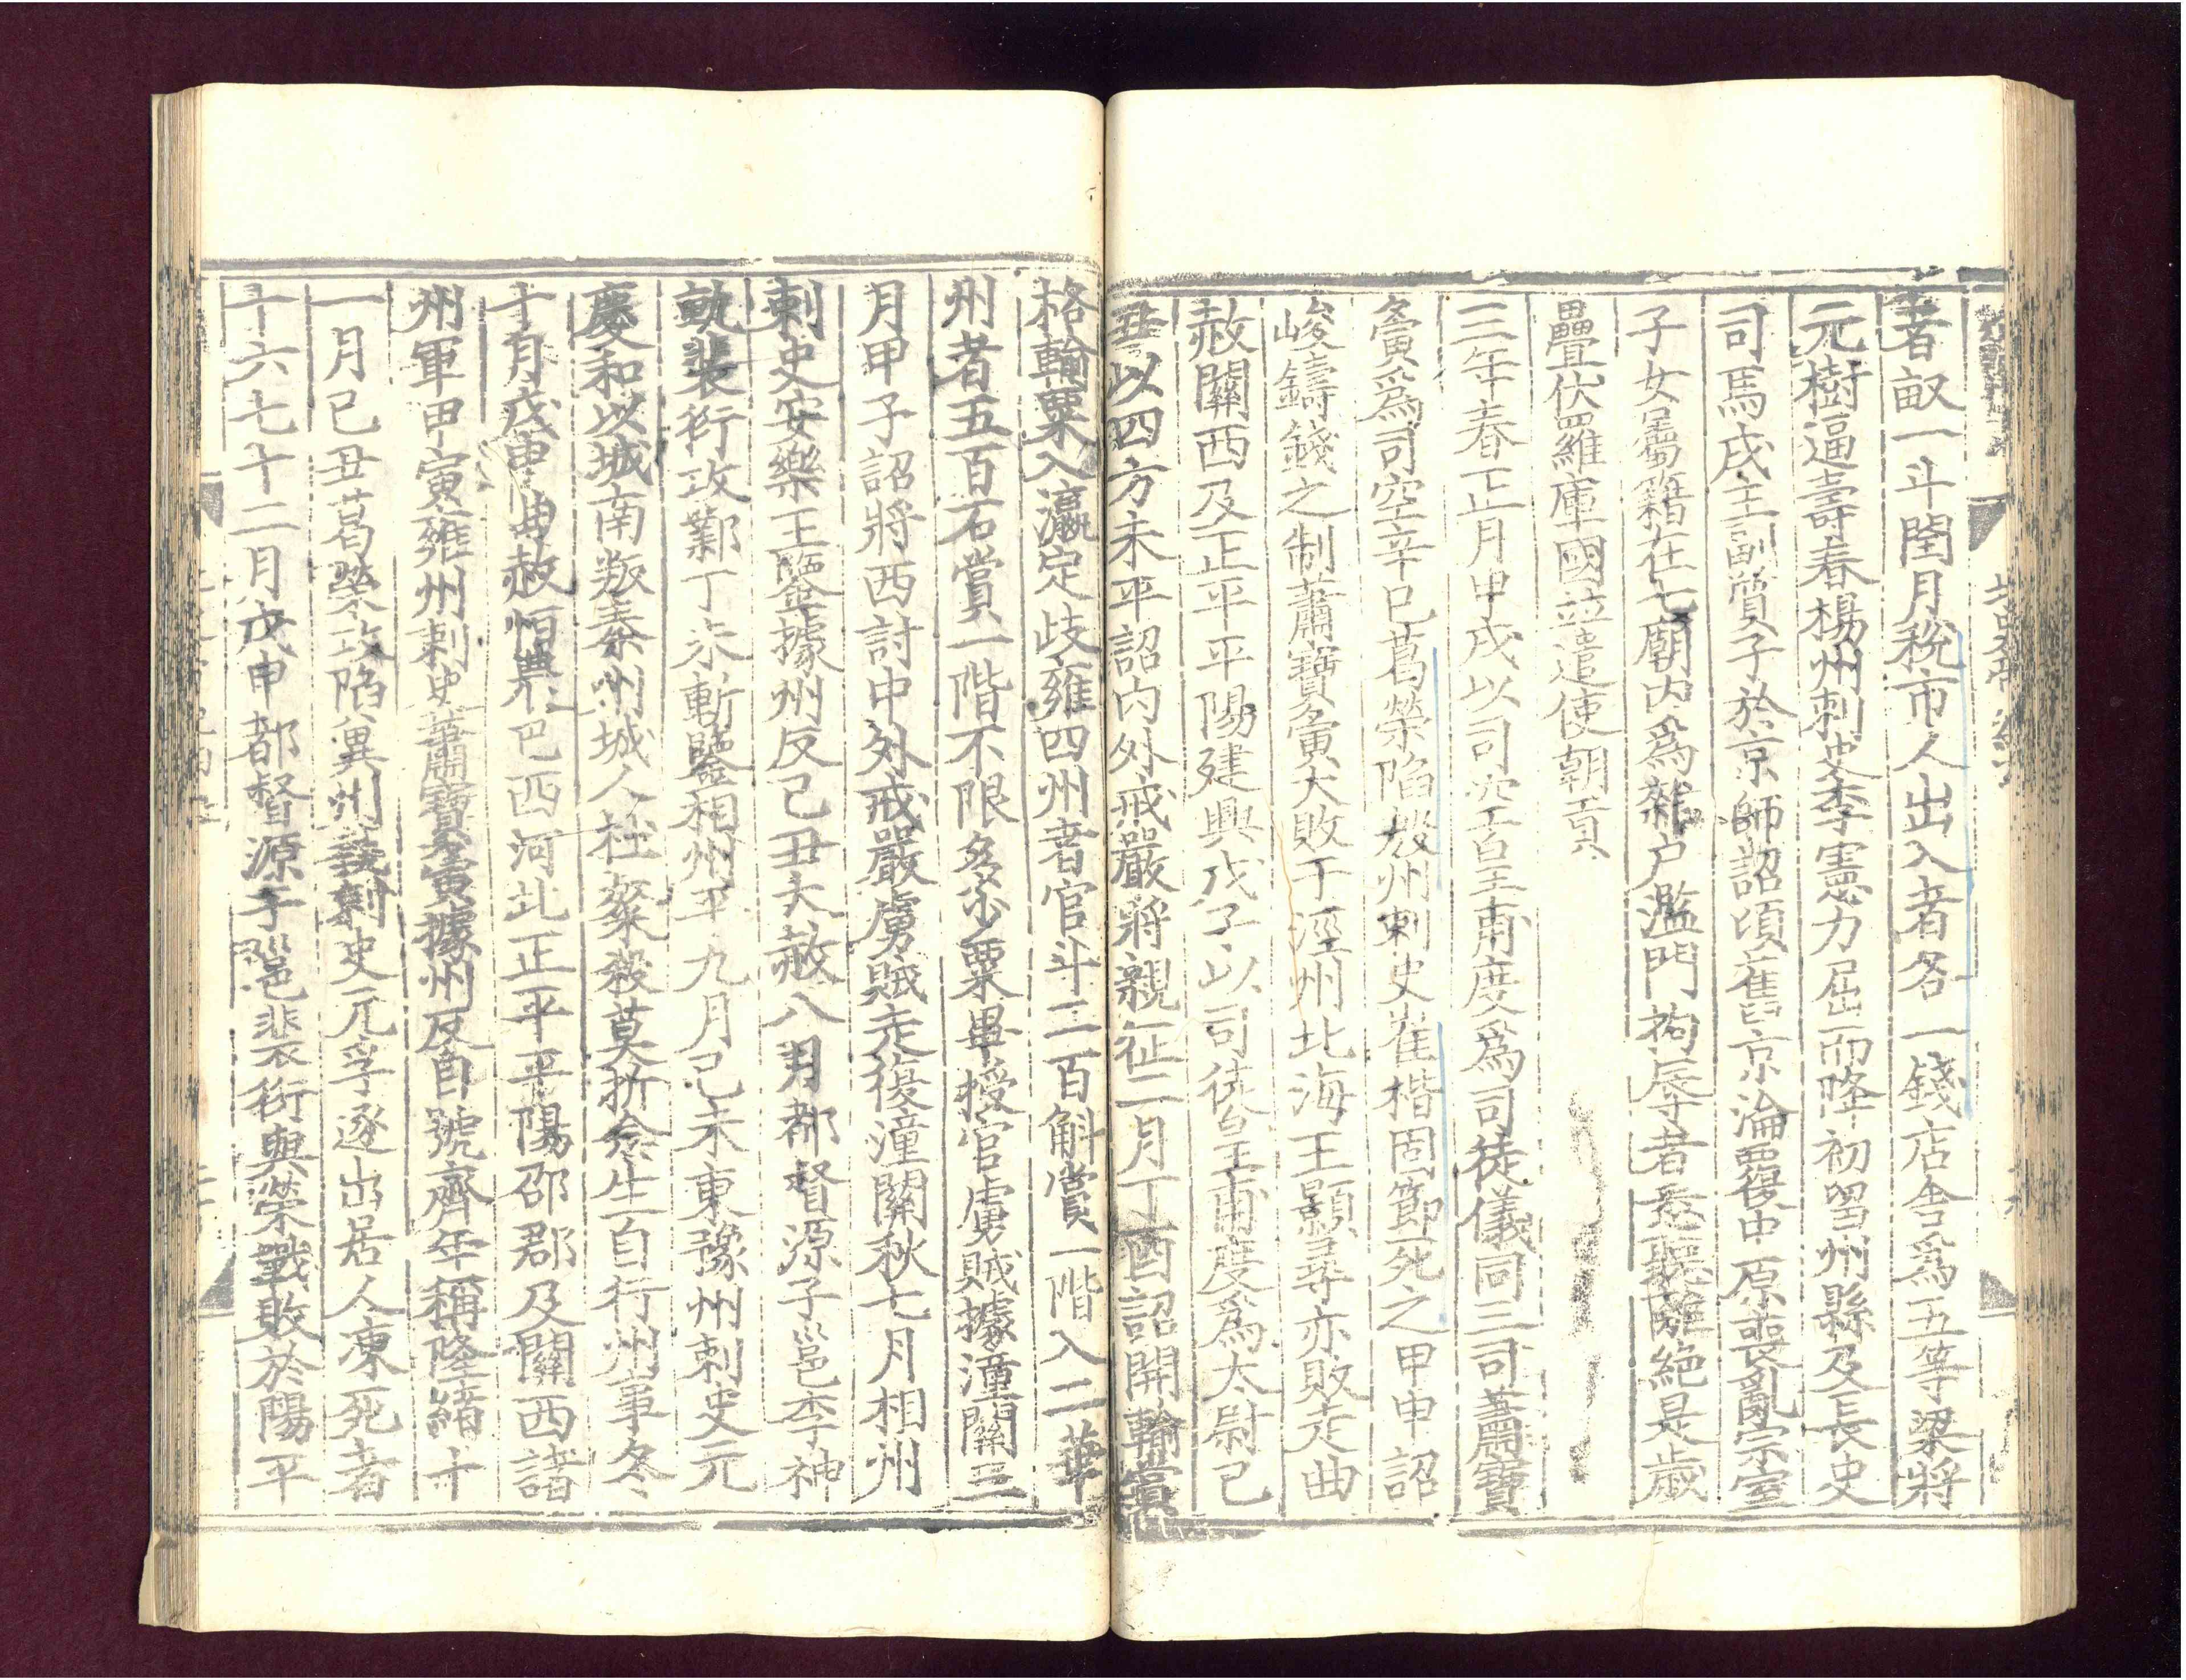 者畝一斗閏月稅市人出入者各一錢店舍爲五等梁將
元樹逼壽春楊州刺史李憲力屈而降初留州縣及長史
司馬戍主副質子於京師詔頃舊京淪覆中原喪亂宗室
子女屬籍在七廟內爲雜户濫門拘辱者悉聽離絶是歲
疊伏羅庫國並遣使朝貢
三年春正月甲戌以司空皇甫度爲司徒儀同三司蕭寶
夤爲司空辛巳葛榮陷殷州刺史崔楷固節死之甲申詔
峻鑄錢之制蕭寶夤大敗于涇州北海王顥尋亦敗走曲
赦關西及正平平陽建興戊子以司徒皇甫度爲太尉己
丑以四方未平詔内外戒嚴將親征二月丁酉詔開輸賞
格輸粟入瀛定歧雍四州者官斗二百斛賞一階入二華
州者五百石賞一階不限多少粟畢授官虜賊據潼關三
月甲子詔將西討中外戒嚴虜賊走復潼關秋七月相州
刺史安樂王鑒據州反己丑大赦八月都督源子邕李神
軌裴衍攻鄴丁未斬鑒相州平九月己未東豫州刺史元
慶和以城南叛秦州城人杜粲殺莫折念生自行州事冬
十月戊申曲赦恒農巴西河北正平平陽邵郡及關西諸
州軍甲寅雍州刺史蕭寶夤據州反自號齊年稱隆緒十
一月己丑葛榮攻陷冀州執刺史元孚逐出居人凍死者
十六七十二月戊申都督源子邕裴衍與榮戰敗於陽平